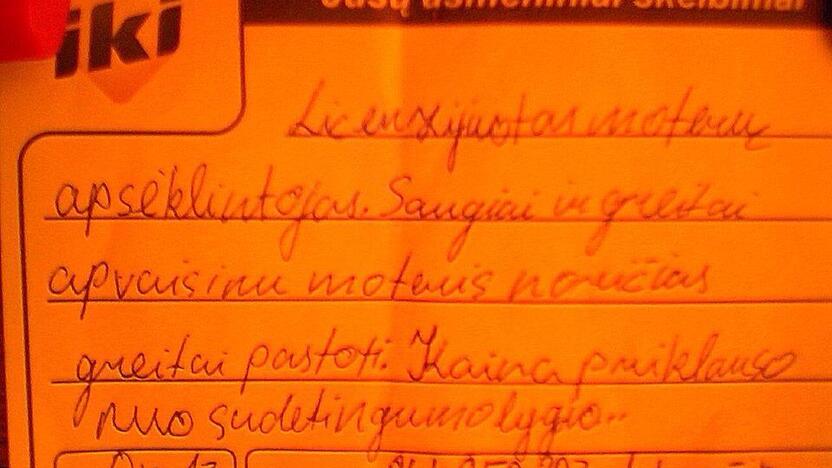 iki
Jūsų asmeniniai skelbimai
Licenzijuotas moterų
apsėklintojas. Saugiai ir greitai
apvaisinu moteris norinčias
greitai pastoti. Kaina priklauso
nuo sudėtingumo lygio..